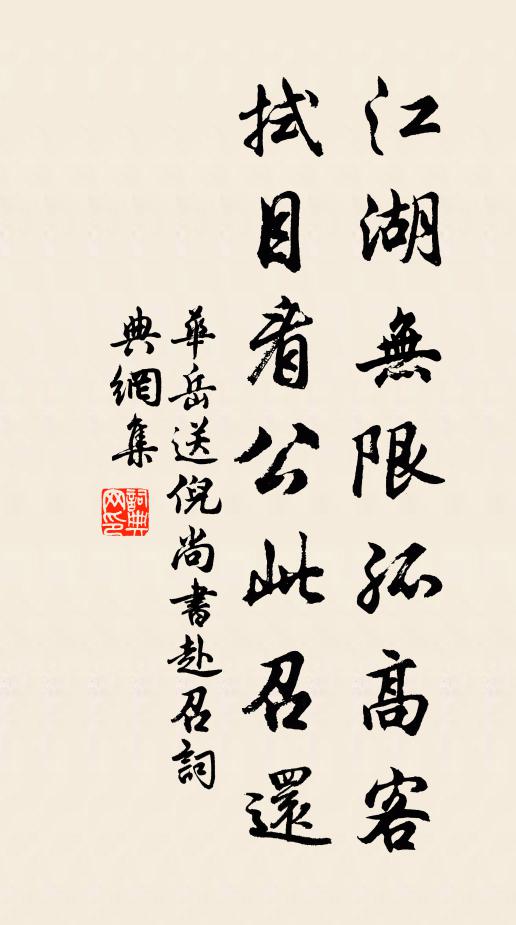 江湖無限孤高客
拭目看公此召還
華岳送倪尚書赴召詞
典網集
詞典网印